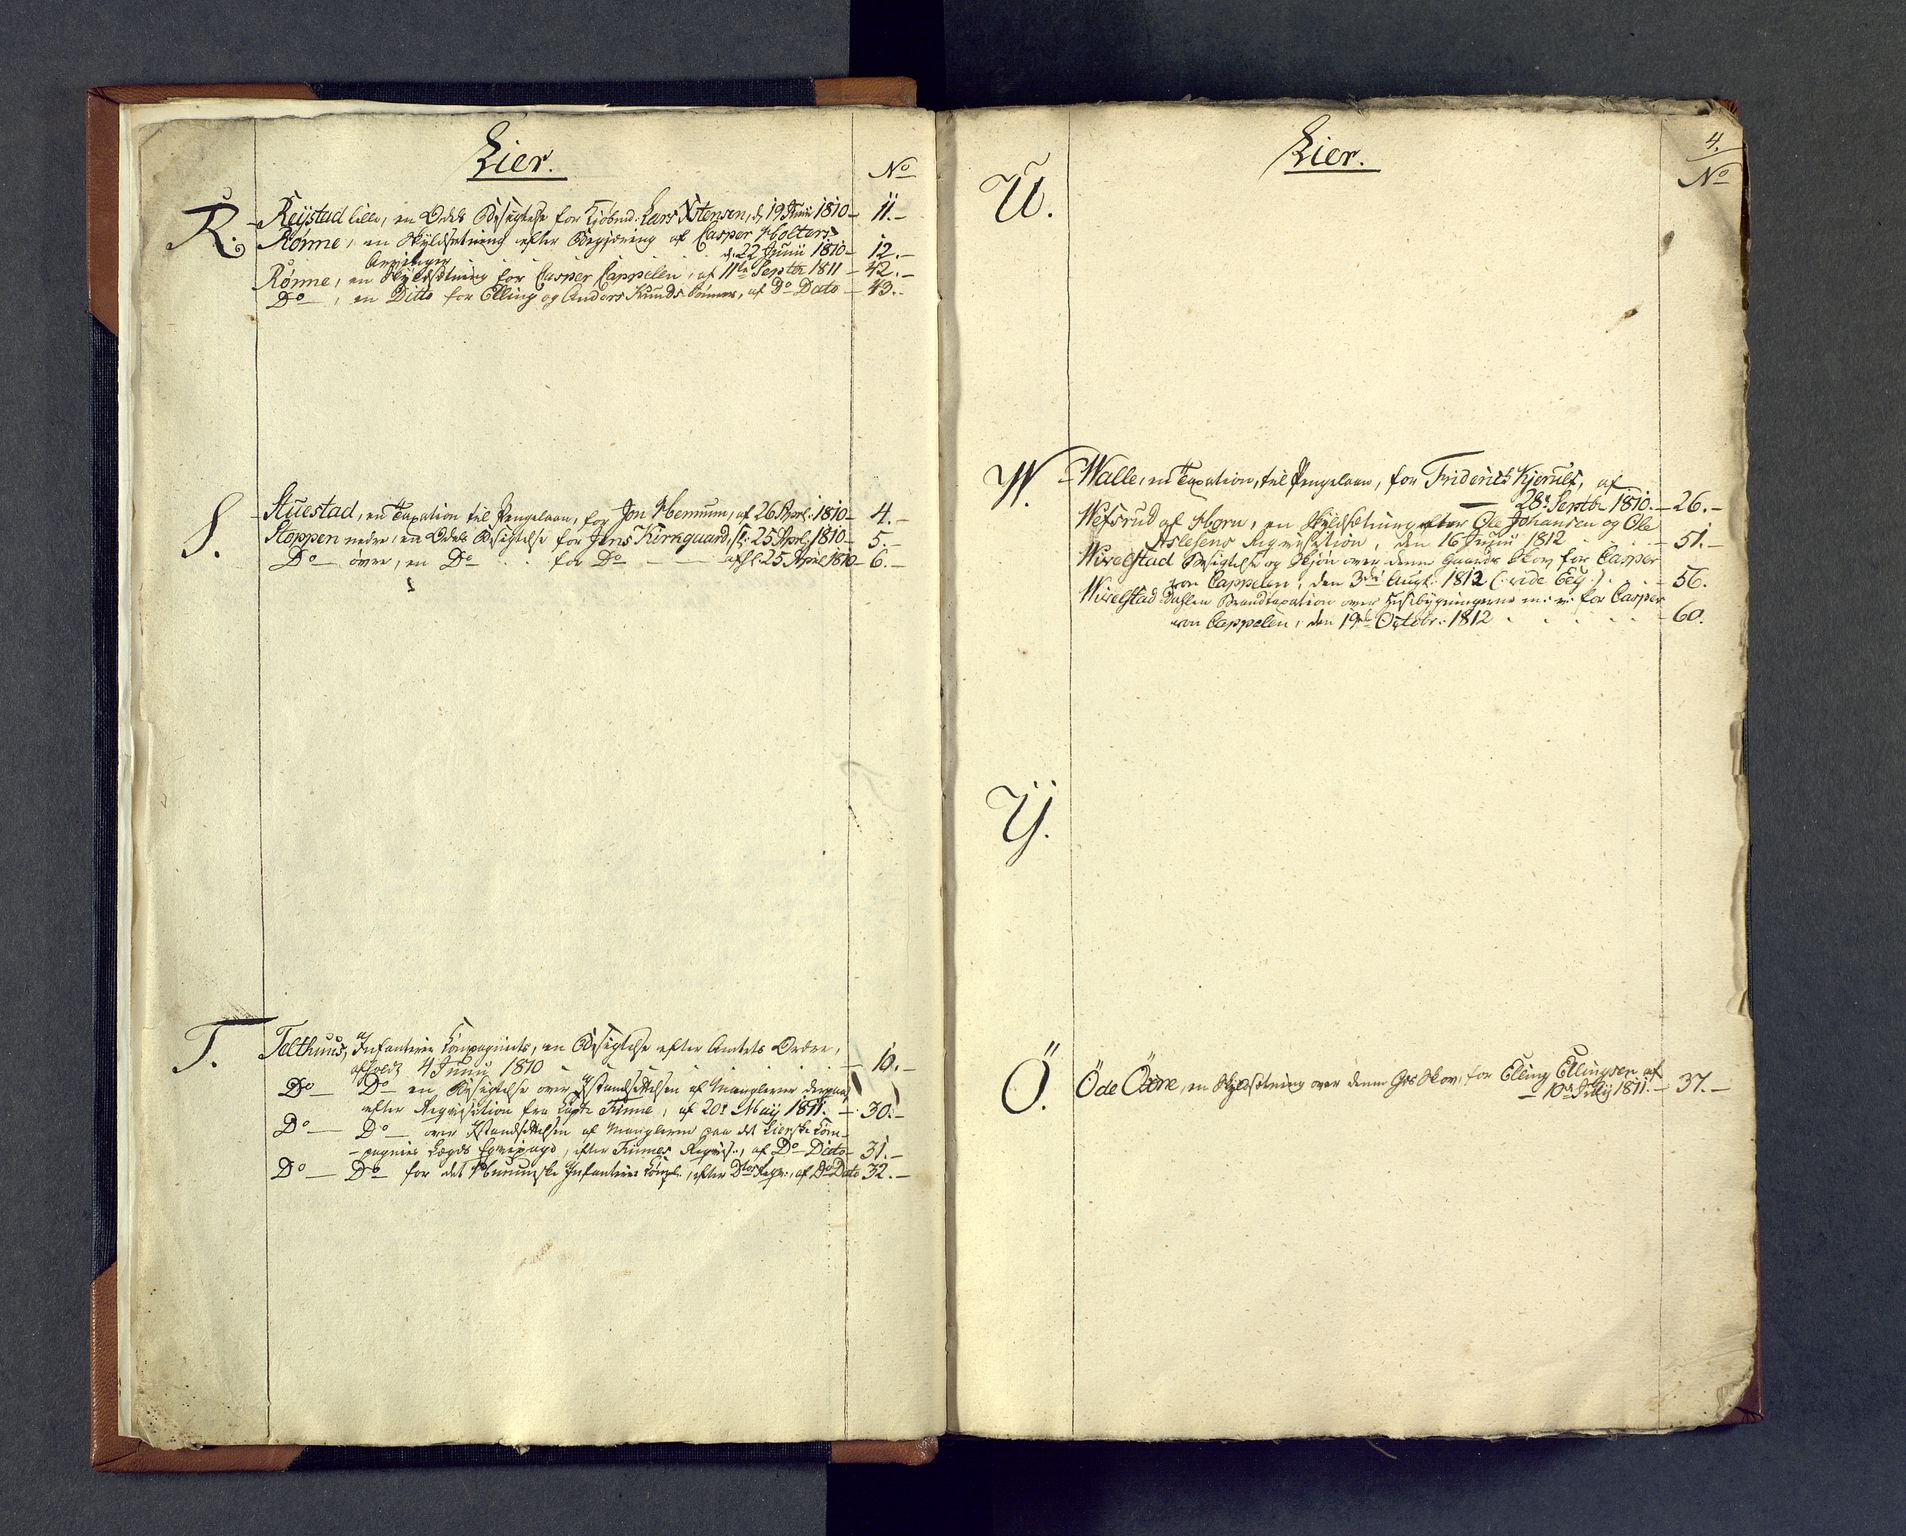 Lier.
No
R.
Reÿstad lille, en Odels Besigtelse for Kjøbmd: Lars Xstensen, d: 19 Junii 1810 - 11.-
Rønne, en Skÿldsætning efter Begjæring af Casper Holters
d: 22 Junii 1810 - 12.-
Rønne, en Skÿldsætning for Casper Cappelen, af 11te Septbr 1811 - 42.-
Do -, en Ditto for Elling og Anders Knuds Sønner, af Do Dato - 43.-
S.
Stuestad, en Taxation til Pengelaan, for Jon Hennum, af 26 April: 1810 - 4.-
Stoppen nedre, en Odels Besigtelse for Jens Kirkgaard, 25 April: 1810 - 5.-
Do - øvre, en Do - for Do - 25 April 1810 - 6.-
T.
Telthuus, af Infanterie Compagniets, en Besigtelse efter Amtets Ordre,
afholdt 4 Junij 1810 - 10.-
Do - Do - en Besigtelse over Istandsættelsen af Manglerne derpaa
efter Reqvisition fra Capt: Finne, af 20de Maÿ 1811. - 30.-
Do - Do - over Istandsættelsen af Manglerne paa det Lierske Com-
-pagnies Lægds Eqvipage, efter Finnes Reqvis:, af Do Dato - 31.-
Do - Do - for det Hurumske Infanterie Comp:, efter Dtos Reqv:, af Do Dato 32.-
Lier.
4.
No
U.
W.
Walle, en Taxation, til Pengelaan, for Friderich Kjerulf, af
28de Septbr 1810. - 26.-
Wefsrud af Horn, en Skÿldsætning efter Ole Johansen og Ole
Aslesens Reqvisition, den 16 Junii 1812 - 51.-
Wivelstad Besigtelse og Skjøn over denne Gaards Skov for Casper
von Cappelen, den 3die Augt: 1812 (: vide Eeg :) - 56.
Wivelstad Dahlen Brandtaxation over Huusbÿgningerne m: v: for Casper
von Cappelen, den 19de Octobr: 1812 - 60.
Y.
Ö.
Öde Öxene, en Skÿldsætning over denne Grs Skov, for Elling Ellingsen af
10de Julÿ 1811. - 37.-